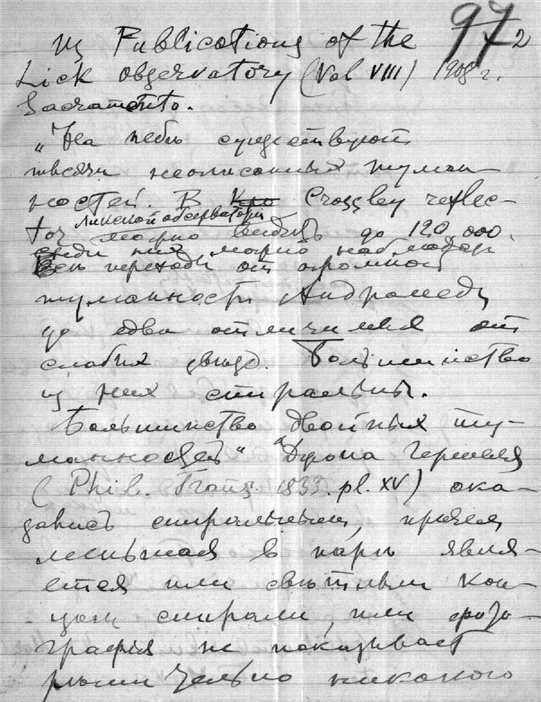 97
Из Publications of the
Lick observatory (Vol VIII) 1908 г.
Sacramento.
„На небе существуют
тысячи неописанных туман-
ностей. В Crossley reflec-
tor Ликской обсерватории можно видеть до 120,000.
Среди них можно наблюдать
переходы от огромной
туманности Андромеды
до едва отличимая от
слабых звезд. Большинство
из них спиральны.
Большинство двойных ту-
манностей" Джона Гершеля
(Phil. Trans 1833. pl. XV) ока-
зались спиральными, причем
меньшая в паре явля-
ется или светлым кон-
цом спирали, или фото-
графия не показывает
решительно никакого